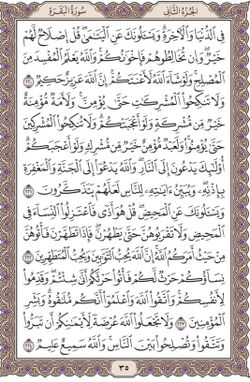 الجزء الثاني
سورة البقرة
فِي ٱلدُّنْيَا وَٱلْـَٔاخِرَةِ وَيَسْـَٔلُونَكَ عَنِ ٱلْيَتَـٰمَىٰ قُلْ إِصْلَاحٌ لَّهُمْ
خَيْرٌ وَإِن تُخَالِطُوهُمْ فَإِخْوَٰنُكُمْ وَٱللَّهُ يَعْلَمُ ٱلْمُفْسِدَ مِنَ
ٱلْمُصْلِحِ وَلَوْ شَآءَ ٱللَّهُ لَأَعْنَتَكُمْ إِنَّ ٱللَّهَ عَزِيزٌ حَكِيمٌ ٢٢٠
وَلَا تَنكِحُوا۟ ٱلْمُشْرِكَـٰتِ حَتَّىٰ يُؤْمِنَّ وَلَأَمَةٌ مُّؤْمِنَةٌ
خَيْرٌ مِّن مُّشْرِكَةٍ وَلَوْ أَعْجَبَتْكُمْ وَلَا تُنكِحُوا۟ ٱلْمُشْرِكِينَ
حَتَّىٰ يُؤْمِنُوا۟ وَلَعَبْدٌ مُّؤْمِنٌ خَيْرٌ مِّن مُّشْرِكٍ وَلَوْ أَعْجَبَكُمْ
أُو۟لَـٰٓئِكَ يَدْعُونَ إِلَى ٱلنَّارِ وَٱللَّهُ يَدْعُوٓا۟ إِلَى ٱلْجَنَّةِ وَٱلْمَغْفِرَةِ
بِإِذْنِهِۦ وَيُبَيِّنُ ءَايَـٰتِهِۦ لِلنَّاسِ لَعَلَّهُمْ يَتَذَكَّرُونَ ٢٢١
وَيَسْـَٔلُونَكَ عَنِ ٱلْمَحِيضِ قُلْ هُوَ أَذًى فَٱعْتَزِلُوا۟ ٱلنِّسَآءَ فِي
ٱلْمَحِيضِ وَلَا تَقْرَبُوهُنَّ حَتَّىٰ يَطْهُرْنَ فَإِذَا تَطَهَّرْنَ فَأْتُوهُنَّ
مِنْ حَيْثُ أَمَرَكُمُ ٱللَّهُ إِنَّ ٱللَّهَ يُحِبُّ ٱلتَّوَّٰبِينَ وَيُحِبُّ ٱلْمُتَطَهِّرِينَ ٢٢٢
نِسَآؤُكُمْ حَرْثٌ لَّكُمْ فَأْتُوا۟ حَرْثَكُمْ أَنَّىٰ شِئْتُمْ وَقَدِّمُوا۟
لِأَنفُسِكُمْ وَٱتَّقُوا۟ ٱللَّهَ وَٱعْلَمُوٓا۟ أَنَّكُم مُّلَـٰقُوهُ وَبَشِّرِ
ٱلْمُؤْمِنِينَ ٢٢٣ وَلَا تَجْعَلُوا۟ ٱللَّهَ عُرْضَةً لِّأَيْمَـٰنِكُمْ أَن تَبَرُّوا۟
وَتَتَّقُوا۟ وَتُصْلِحُوا۟ بَيْنَ ٱلنَّاسِ وَٱللَّهُ سَمِيعٌ عَلِيمٌ ٢٢٤
٣٥